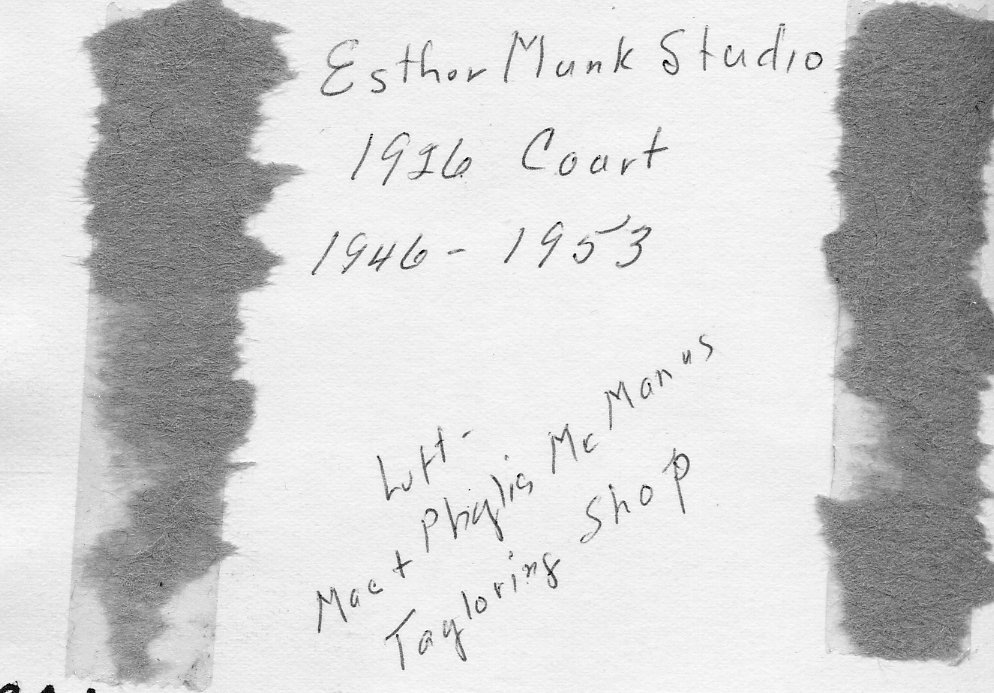 Esther Munk Studio
1926 Court
1946 - 1953
Left -
Mac + Phylis McManus
Tayloring Shop